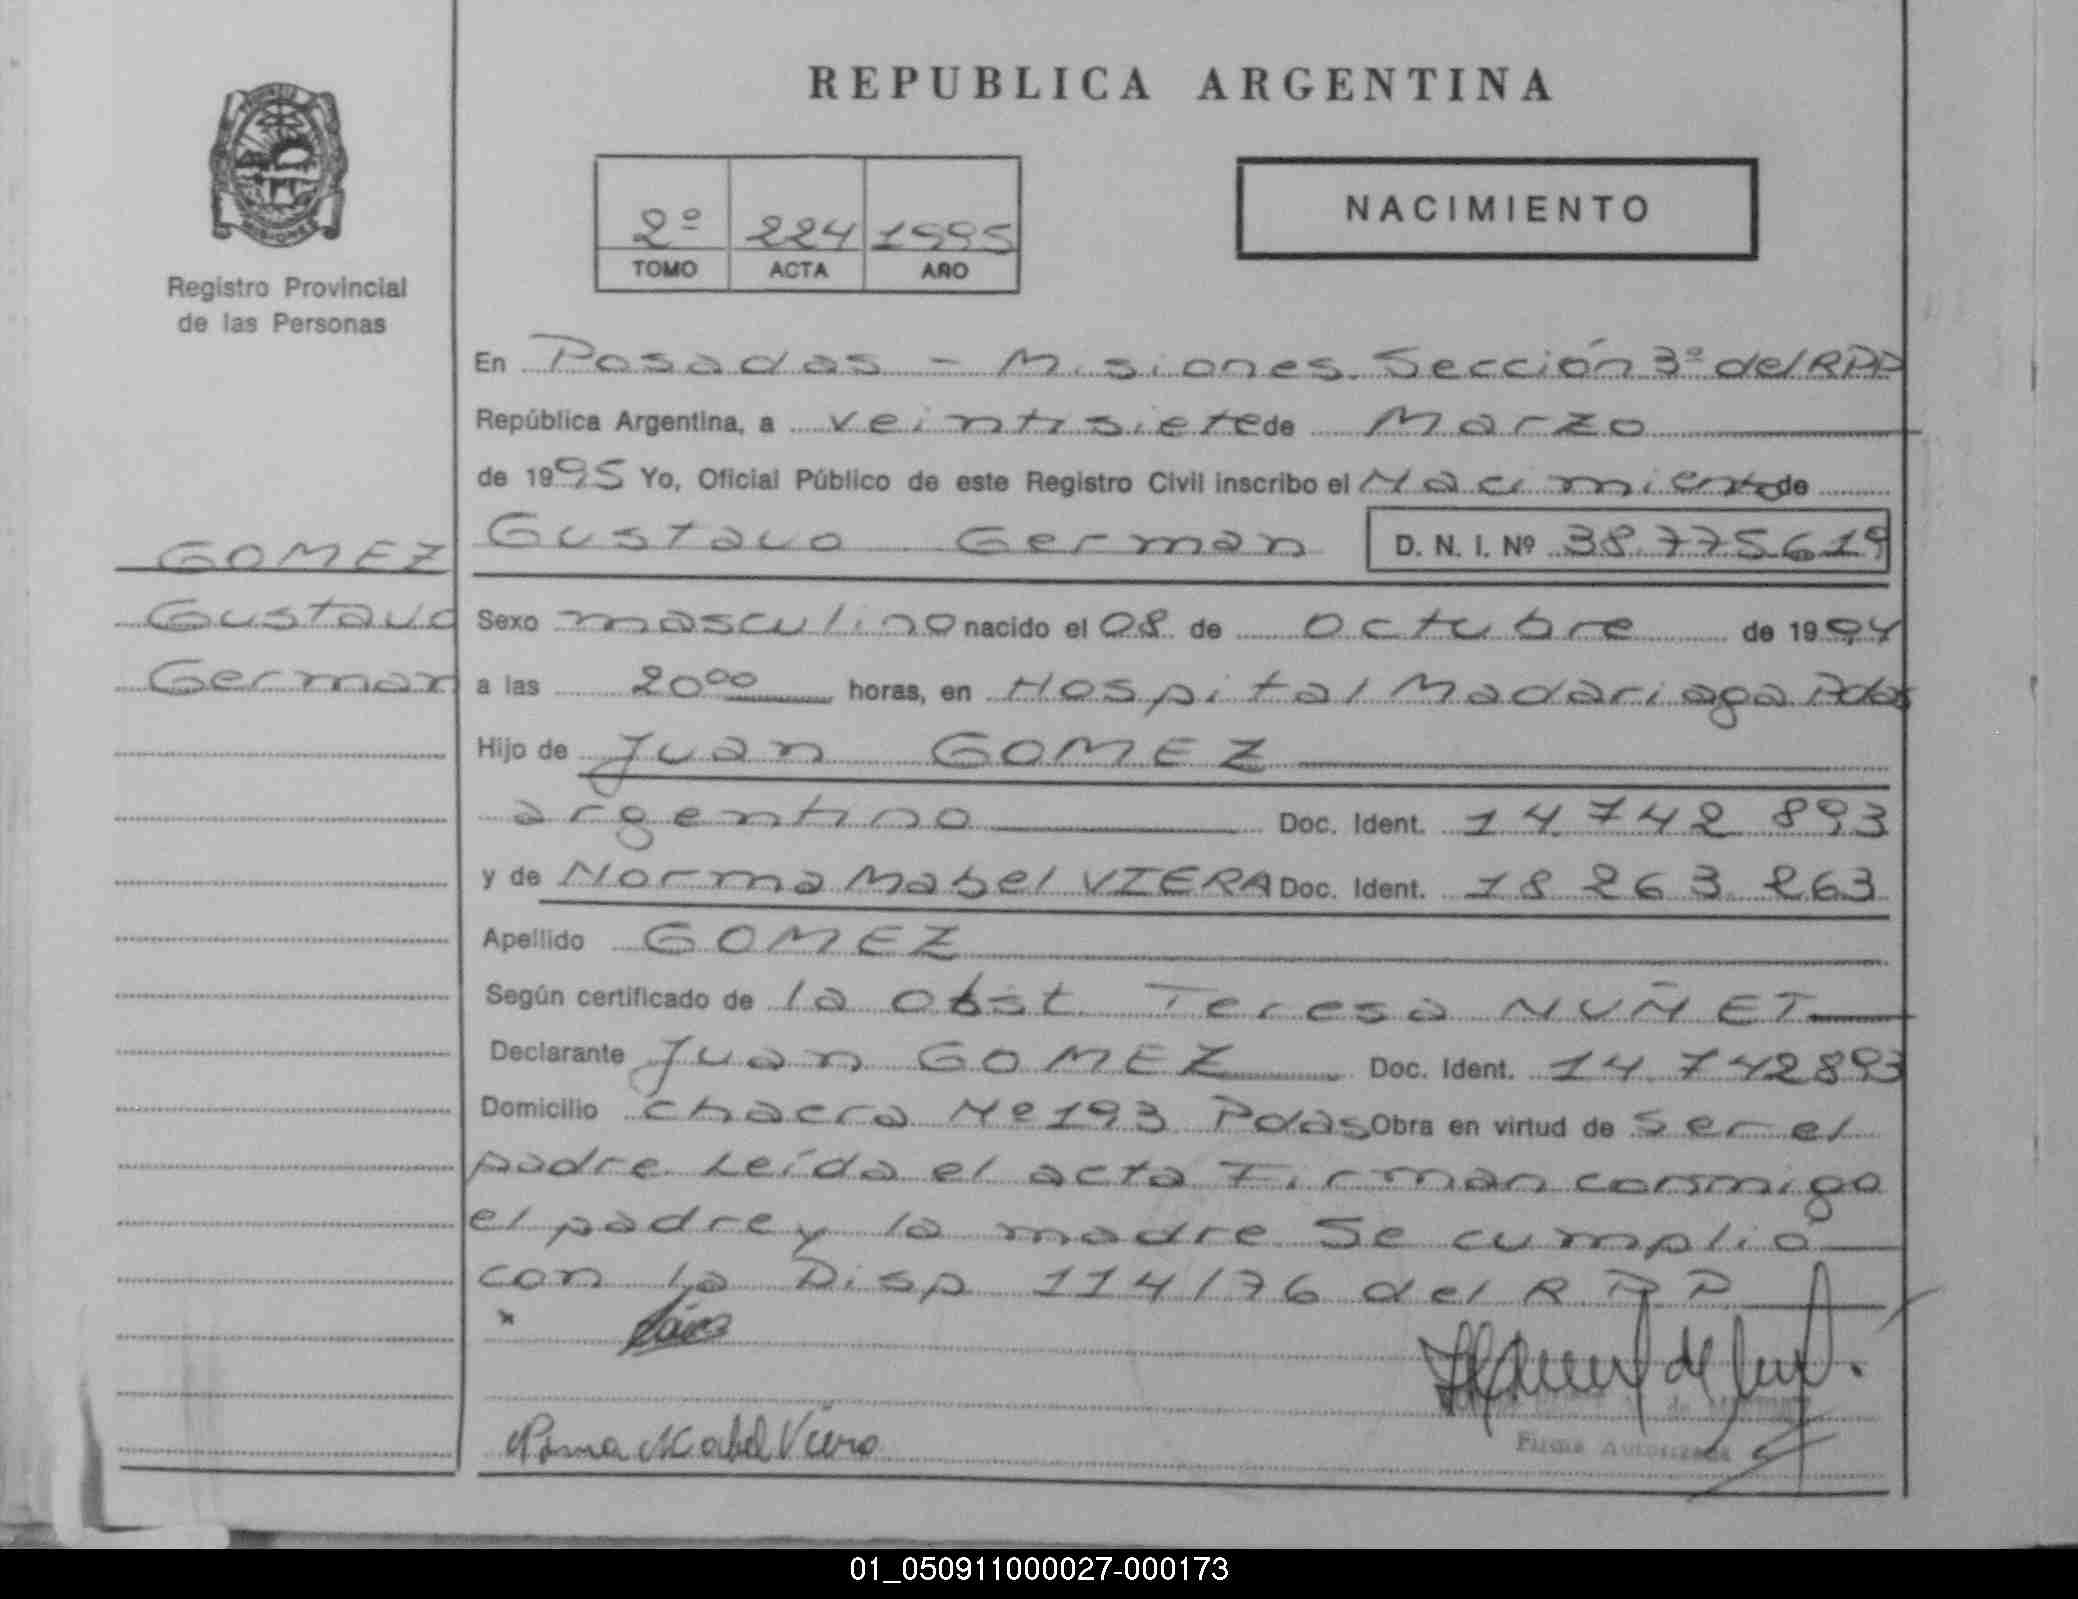 REPUBLICA ARGENTINA
PROVINCIA MISIONES
Registro Provincial
de las Personas
2º 224 1995
TOMO ACTA AÑO
NACIMIENTO
GOMEZ
Gustavo
German
En Posadas - Misiones. Sección 3º del RPP
República Argentina, a veintisiete de Marzo
de 1995 Yo, Oficial Público de este Registro Civil inscribo el Nacimiento de
Gustavo German D. N. I. Nº 38.775619
Sexo masculino nacido el 08 de octubre de 1994
a las 20⁰⁰ horas, en Hospital Madariaga Pdas
Hijo de Juan GOMEZ
argentino Doc. Ident. 14.742 893
y de Norma Mabel VIERA Doc. Ident. 18 263 263
Apellido GOMEZ
Según certificado de la Obst Teresa NUÑET
Declarante Juan GOMEZ Doc. Ident. 14.742893
Domicilio chacra Nº 193 Pdas Obra en virtud de ser el
padre Leída el acta Firman conmigo
el padre y la madre Se cumplió
con la Disp 114/76 del R P P
Norma Mabel Viera
Firma Autorizada
01_050911000027-000173